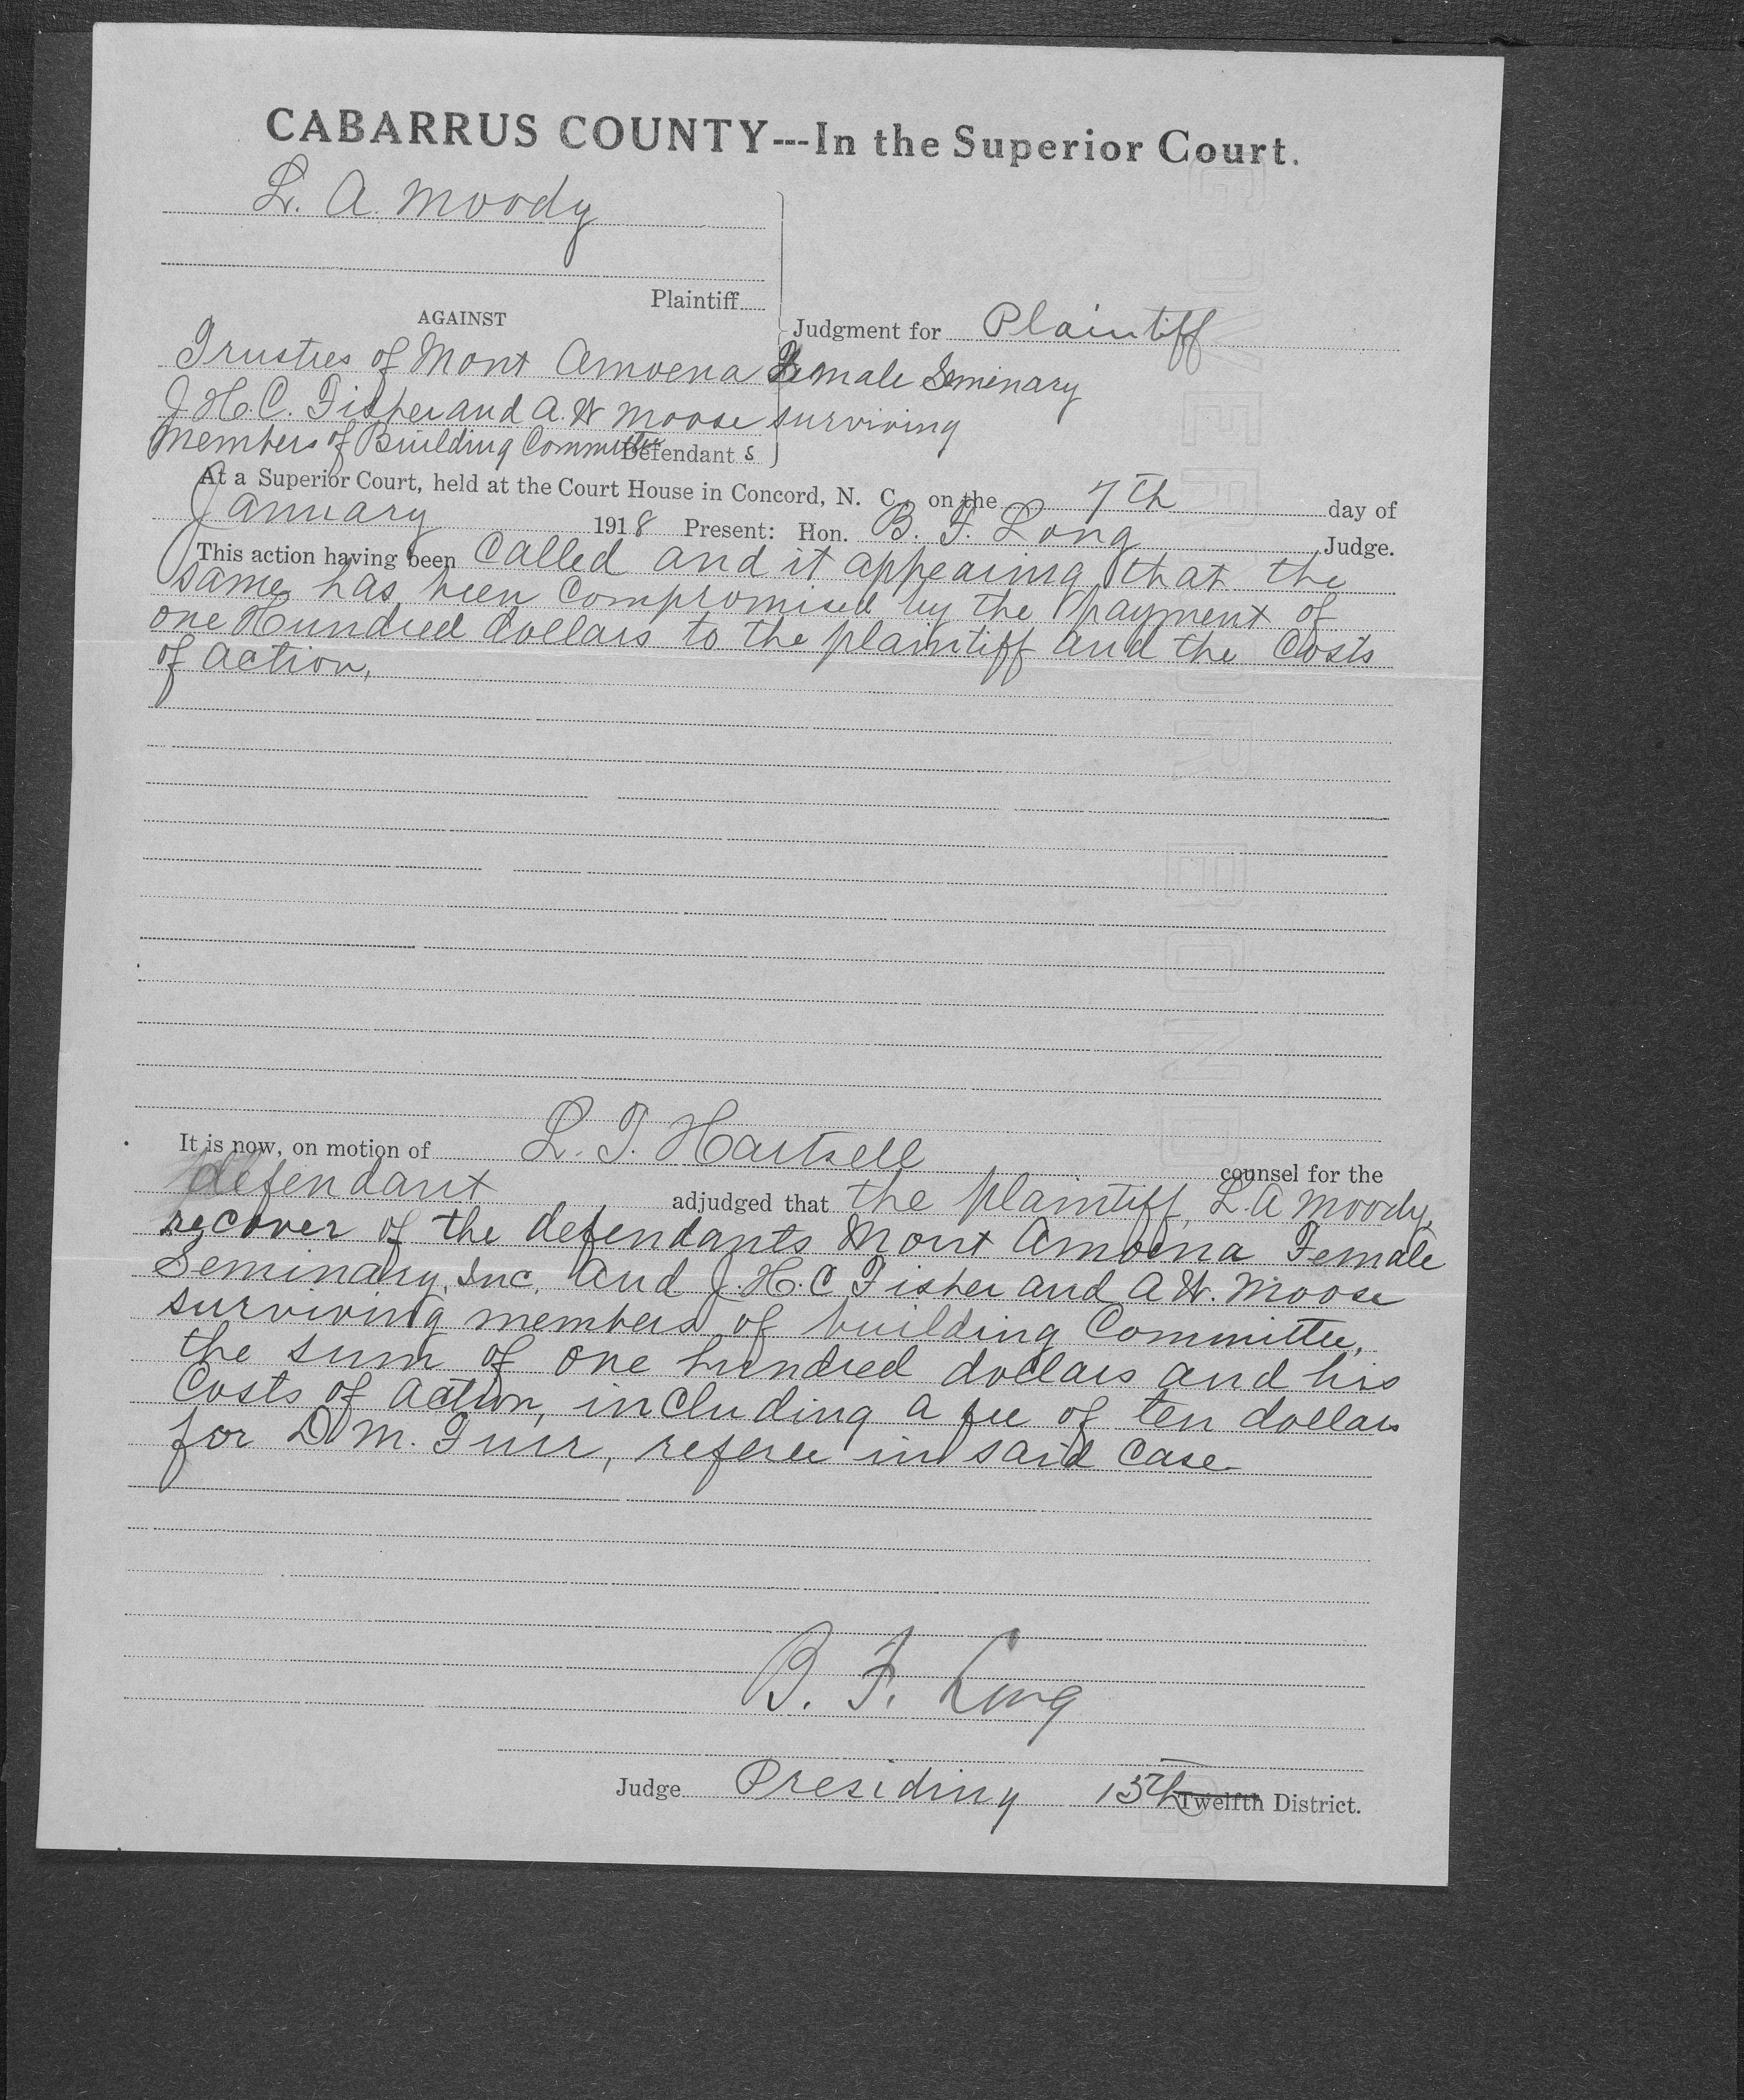 CABARRUS COUNTY---In the Superior Court.
L. A. Moody
Plaintiff
AGAINST
Judgment for Plaintiff
Trustees of Mont Amoena Female Seminary
J. H. C. Fisher and A. W Moose surviving
Members of Building Committee Defendant s
At a Superior Court, held at the Court House in Concord, N. C., on the 7th day of
January 1918 Present: Hon. B. F. Long Judge.
This action having been called and it appearing that the
same has been compromised by the payment of
one Hundred dollars to the plaintiff and the costs
of action,
It is now, on motion of L. T. Hartsell counsel for the
defendant adjudged that the plaintiff, L. A Moody,
recover of the defendants Mont Amoena Female
Seminary, Inc, and J. H. C Fisher and A W. Moose
surviving members of building Committee,
the sum of one hundred dollars and his
costs of action, including a fee of ten dollars
for D M. Furr, referee in said case
B. F. Long
Judge Presiding 15th Twelfth District.
GOVERNOR BOND